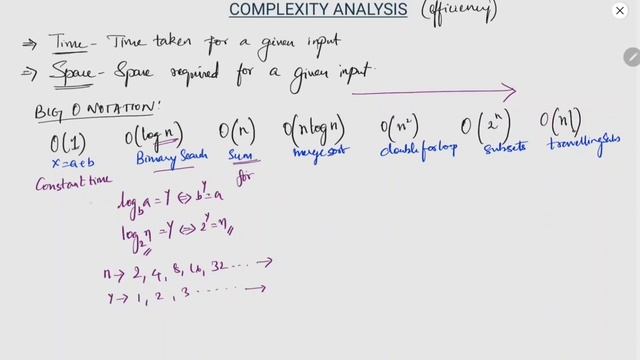 COMPLEXITY ANALYSIS (efficiency)
⇒ Time - Time taken for a given input
⇒ Space - Space required for a given input
BIG O NOTATION:
O(1) O(log n) O(n) O(n log n) O(n²) O(2ⁿ) O(n!)
x=a+b Binary Search Sum merge sort double for loop subsets travelling sales
Constant time for
log_b a = Y ⇔ b^Y = a
log_2 n = Y ⇔ 2^Y = n
n → 2, 4, 8, 16, 32 ... →
Y → 1, 2, 3 ...... →